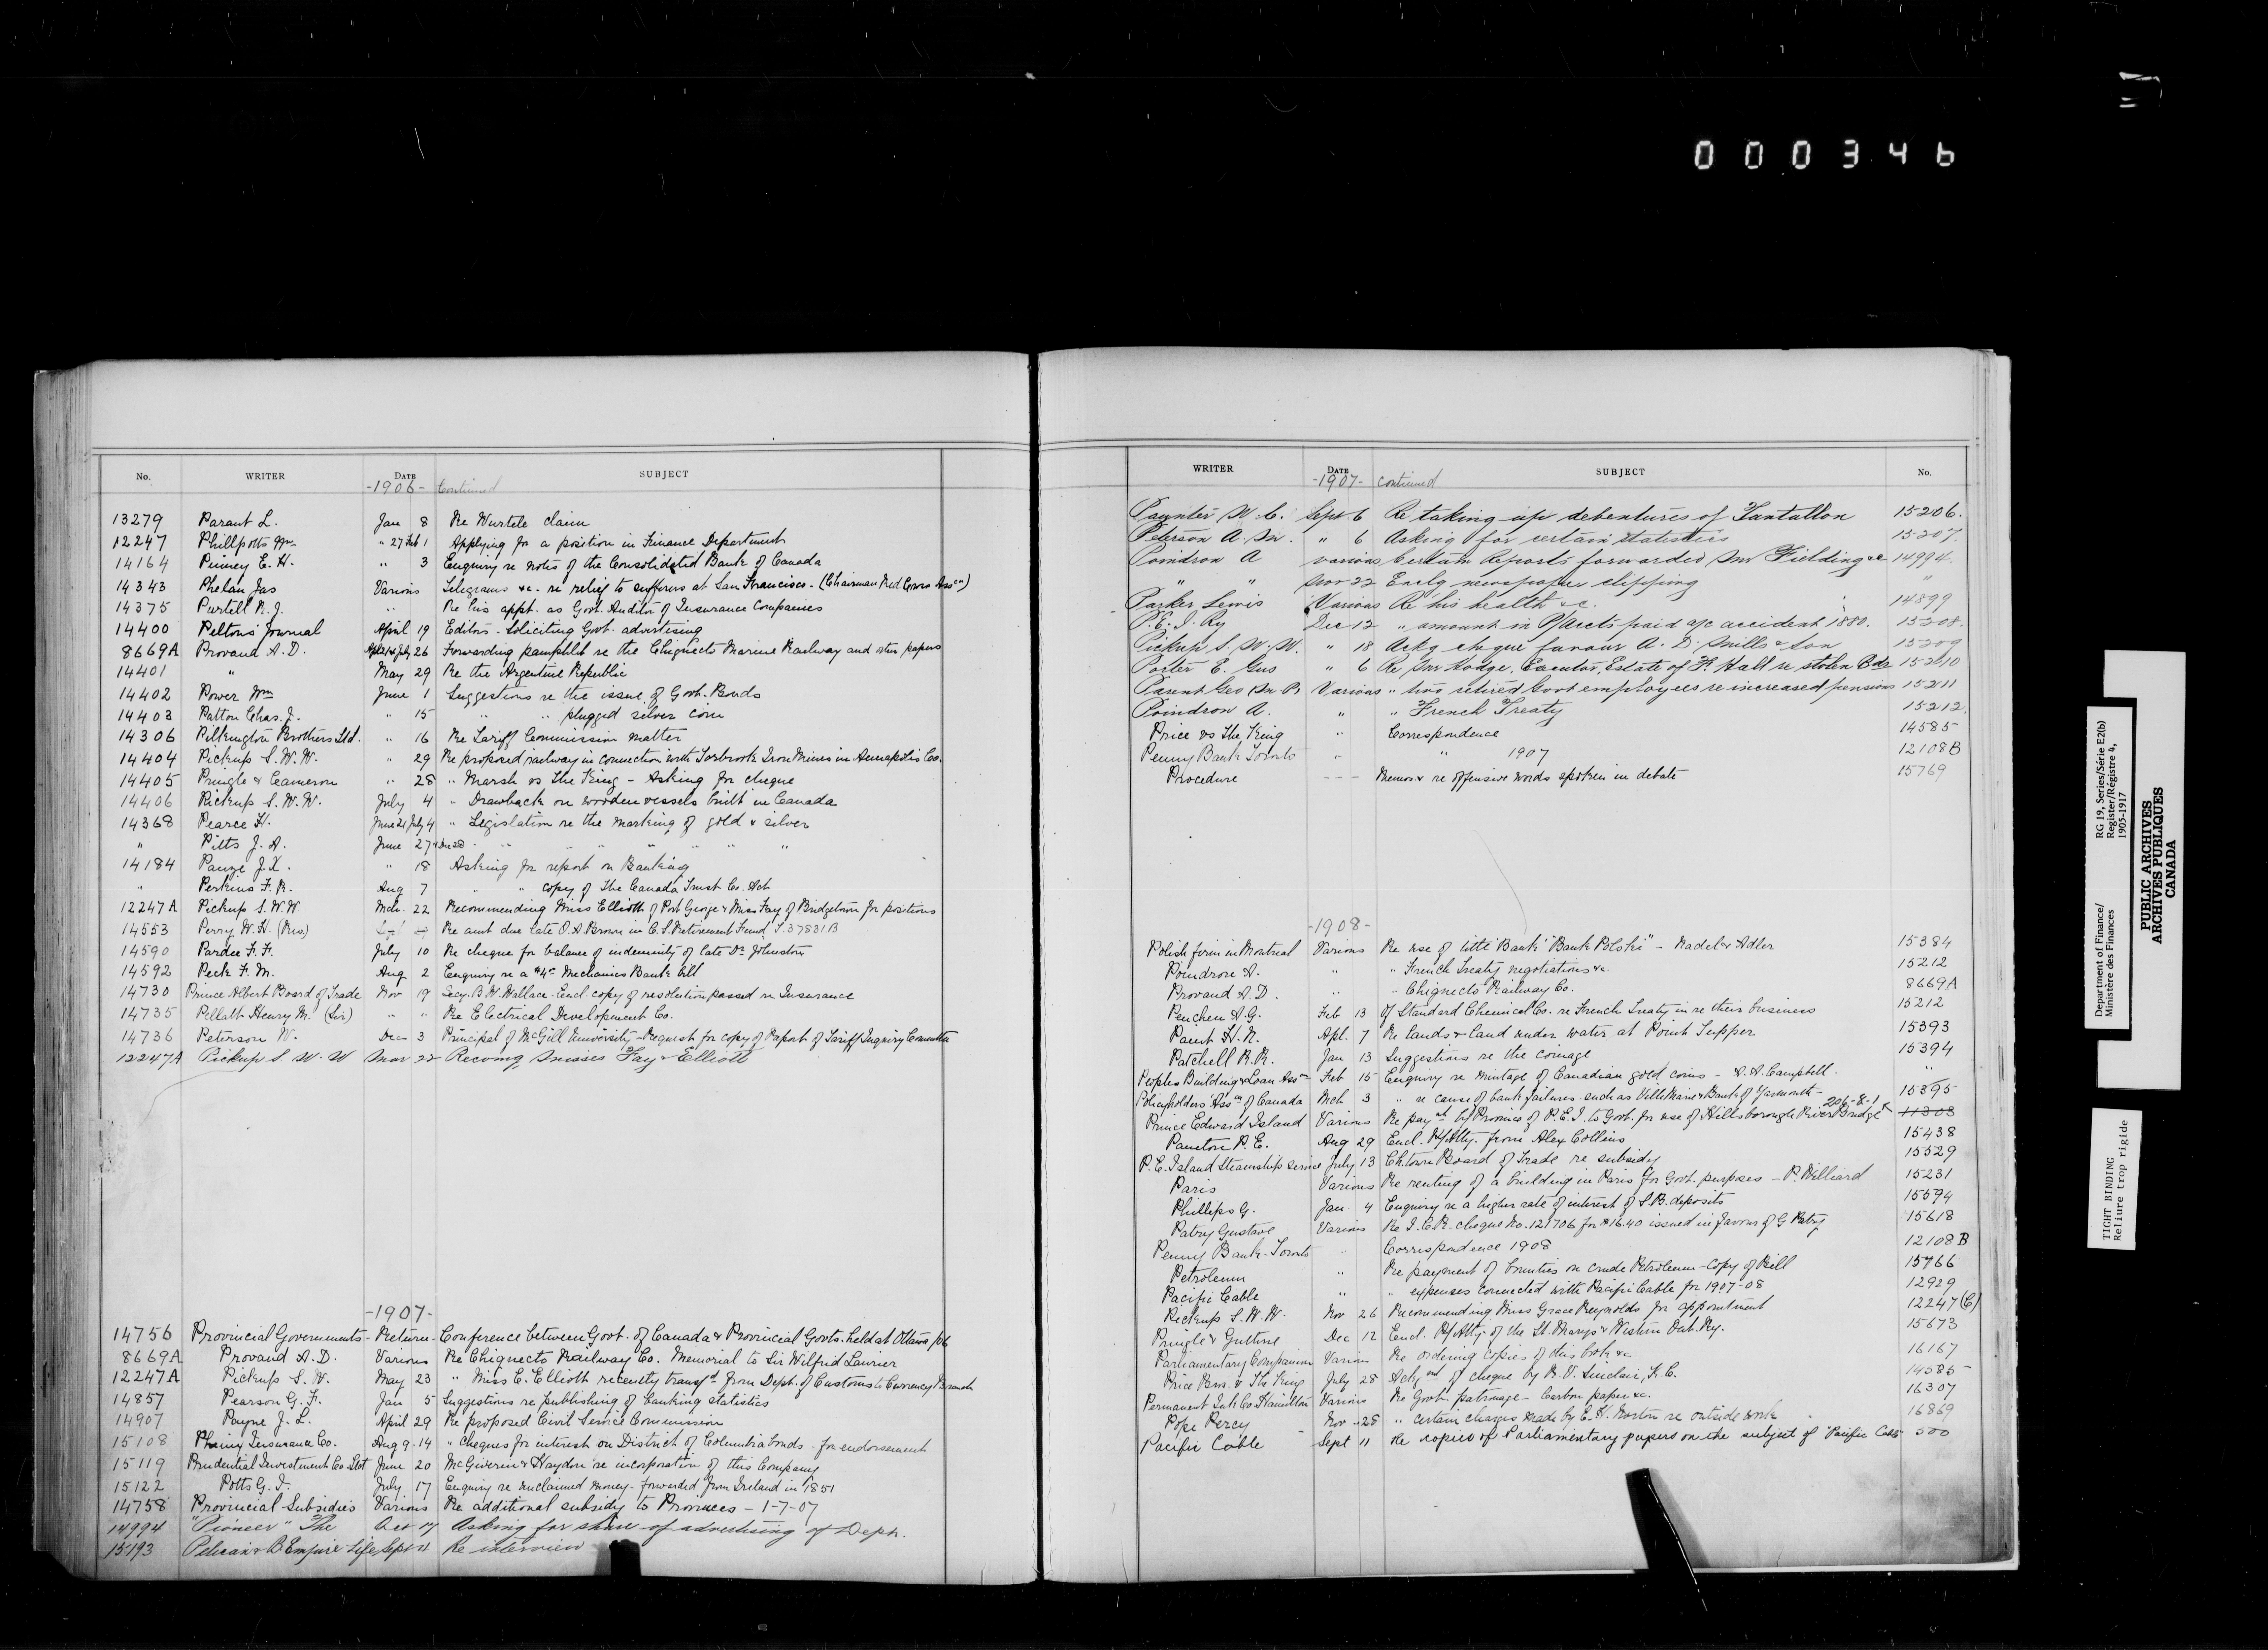 000346
No. WRITER DATE SUBJECT
-1906- Continued
13279 Parant L. Jan 8 Re Wurtele claim
12247 Phillpotts Wm " 27 Feb 1 Applying for a position in Finance Department
14164 Pinney E. H. " 3 Enquiry re notes of the Consolidated Bank of Canada
14343 Phelan Jas Various Telegrams &c. re relief to sufferers at San Francisco - (Chairman Red Cross Asscn)
14375 Purtell R. J. " Re his appt. as Govt. Auditor of Insurance Companies
14400 Pelton's Journal April 19 Editor - Soliciting Govt. advertising
8669A Provand A. D. July 26 Forwarding pamphlet re the Chignecto Marine Railway and other papers
14401 " May 29 Re the Argentine Republic
14402 Power Wm June 1 Suggestions re the issue of Govt. Bonds
14403 Patton Chas. J. " 15 " " plugged silver coin
14306 Pilkington Brothers Ltd. " 16 Re Tariff Commission matter
14404 Pickup S. W. W. " 29 Re proposed railway in connection with Torbrook Iron Mines in Annapolis Co.
14405 Pringle & Cameron " 28 " Marsh vs The King - Asking for cheque
14406 Pickup S. W. W. July 4 " Drawback on wooden vessels built in Canada
14368 Pearce H. June 21 July 4 " Legislation re the marking of gold & silver
" Pitts J. A. June 27 " " " " " "
14184 Pauze J. X. " 18 Asking for report on Banking
" Perkins F. R. Aug 7 " " copy of the Canada Trust Co. Act
12247A Pickup S. W. W. Mch. 22 Recommending Miss Elliott of Port George & Miss Fay of Bridgetown for positions
14553 Perry W. H. (Mrs) Re amt due late O. A. Brown in C. S. Retirement Fund, S. 37831B
14590 Pardee F. F. July 10 Re cheque for balance of indemnity of late Dr Johnston
14592 Peck F. M. Aug 2 Enquiry re a $4.00 Mechanics Bank bill
14730 Prince Albert Board of Trade Nov 19 Secy. B. W. Wallace - Encl copy of resolution passed re Insurance
14735 Pellatt Henry M. (Sir) " " Re Electrical Development Co.
14736 Peterson W. Dec 3 Principal of McGill University - Request for copy of Report of Tariff Inquiry Committee
12247A Pickup S. W. W Mar 22 Recomg Misses Fay & Elliott
-1907-
14756 Provincial Governments - Return - Conference between Govt. of Canada & Provincial Govts. held at Ottawa /06
8669A Provand A. D. Various Re Chignecto Railway Co. Memorial to Sir Wilfrid Laurier
12247A Pickup S. W. May 23 " Miss E. Elliott recently transfd from Dept. of Customs to Currency Branch
14857 Pearson G. F. Jan 5 Suggestions re publishing of banking statistics
14907 Payne J. L. April 29 Re proposed Civil Service Commission
15108 Phoenix Insurance Co. Aug 9 - 14 " cheques for interest on District of Columbia bonds - for endorsement
15119 Prudential Investment Co June 20 McGiverin & Haydon re incorporation of this Company
15122 Potts G. I. July 17 Enquiry re unclaimed money - forwarded from Ireland in 1851
14758 Provincial Subsidies Various Re additional subsidy to Provinces - 1-7-07
14994 "Pioneer" The Oct 17 Asking for share of advertising of Dept.
15193 Pelican & B Empire Life Sept Re interview
WRITER DATE SUBJECT No.
-1907- continued
Paynter W. C. Sept 6 Re taking up debentures of Tantallon 15206.
Peterson A. " 6 Asking for certain statistics 15207.
Poindron A various Certain Reports forwarded Mr Fielding &c 14994.
" " Nov 22 Enclg newspaper clipping "
Parker Lewis Various Re his health &c. 14899
P. E. I. Ry Dec 12 " amount in O/Accts paid a/c accident 1880. 15208.
Pickup S. W. W. " 18 Ackg cheque favour A. D. Mills & Son 15209
Porter E. Gus " 6 Re Mr Hodge, Executor, Estate of F. Hall re stolen Bds 15210
Parent Geo Various " two retired Govt employees re increased pensions 15211
Poindron A. " " French Treaty 15212.
Price vs The King " Correspondence 14585
Penny Bank Toronto " " 1907 12108B
Procedure - - - Memo re offensive words spoken in debate 15769
-1908-
Polish firm in Montreal Various Re use of title "Bank" "Bank Polski" - Nadel & Adler 15384
Poindron A. " " French Treaty negotiations &c. 15212
Provand A. D. " " Chignecto Railway Co. 8669A
Peuchen A. G. Feb 13 of Standard Chemical Co. re French Treaty in re their business 15212
Paint H. N. Apl. 7 Re lands & land under water at Point Tupper 15393
Patchell R. R. Jan 13 Suggestions re the coinage 15394
Peoples Building & Loan Assn Feb 15 Enquiry re mintage of Canadian gold coins - A. A. Campbell. "
Policyholders' Assn of Canada Mch 3 " re cause of bank failures such as Ville Marie & Bank of Yarmouth - 15395
206-8-1
Prince Edward Island Various Re payt by Province of P. E. I. to Govt. for use of Hillsborough River Bridge 11303
Paunton P. E. Aug 29 Encl. P/Atty. from Alex Collins 15438
P. E. Island Steamship service July 13 Ch. town Board of Trade re subsidy 15529
Paris Various Re renting of a building in Paris for Govt. purposes - P. Williard 15231
Phillips G. Jan. 4 Enquiry re a higher rate of interest of S. B. deposits 15594
Patry Gustave Various Re I. C. R. cheque No. 121706 for $16.40 issued in favour of G Patry 15618
Penny Bank - Toronto " Correspondence 1908 12108B
Petroleum " Re payment of bounties on crude Petroleum - Copy of Bill 15766
Pacific Cable " " expenses connected with Pacific Cable for 1907-08 12929
Pickup S. W. W. Nov 26 Recommending Miss Grace Reynolds for appointment 12247(C)
Pringle & Guthrie Dec 12 Encl. P/Atty. of the St. Marys & Western Ont. Ry. 15673
Parliamentary Companion Various Re ordering copies of this book &c 16167
Price Bros. & The King July 28 Ackgmt of cheque by R. V. Sinclair, K. C. 14585
Permanent Ink Co. Hamilton Various Re Govt. patronage - Carbon paper &c. 16307
Pope Percy Nov 28 " certain charges made by E. H. Norton re outside work 16869
Pacific Cable Sept 11 Re copies of Parliamentary papers on the subject of "Pacific Cable" 500
Department of Finance/
Ministère des Finances
RG 19, Series/Série E2(b)
Register/Régistre 4,
1905-1917
PUBLIC ARCHIVES
ARCHIVES PUBLIQUES
CANADA
TIGHT BINDING
Reliure trop rigide